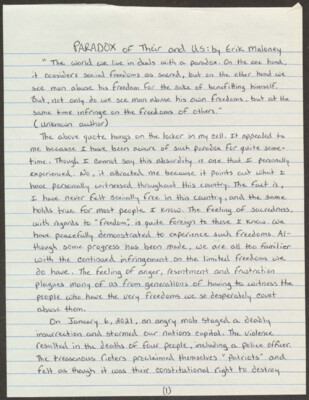 PARADOX of Their and US: by Erik Maloney
" The world we live in deals with a paradox. On the one hand,
it considers social freedoms as sacred, but on the other hand we
see man abuse his freedom for the sake of benefitting himself.
But, not only do we see man abuse his own freedoms, but at the
same time infringe on the freedoms of others."
(Unknown author)
The above quote hangs on the locker in my cell. It appealed to
me because I have been aware of such paradox for quite some-
time. Though I cannot say this absurdity is one that I personally
experienced. No, it attracted me because it points out what I
have personally witnessed throughout this country. The fact is,
I have never felt socially free in this country, and the same
holds true for most people I know. The feeling of sacredness,
with regards to "freedom", is quite foreign to those I know. We
have peacefully demonstrated to experience such freedoms. Al-
though some progress has been made, we are all too familiar
with the continued infringement on the limited freedoms we
do have. The feeling of anger, resentment and frustration
plagues many of us from generations of having to witness the
people who have the very freedoms we so desperately covet
abuse them.
On January 6, 2021, an angry mob staged a deadly
insurrection and stormed our nations capital. The violence
resulted in the deaths of four people, including a police officer.
The treasonous rioters proclaimed themselves "Patriots" and
felt as though it was their constitutional right to destroy
(1)